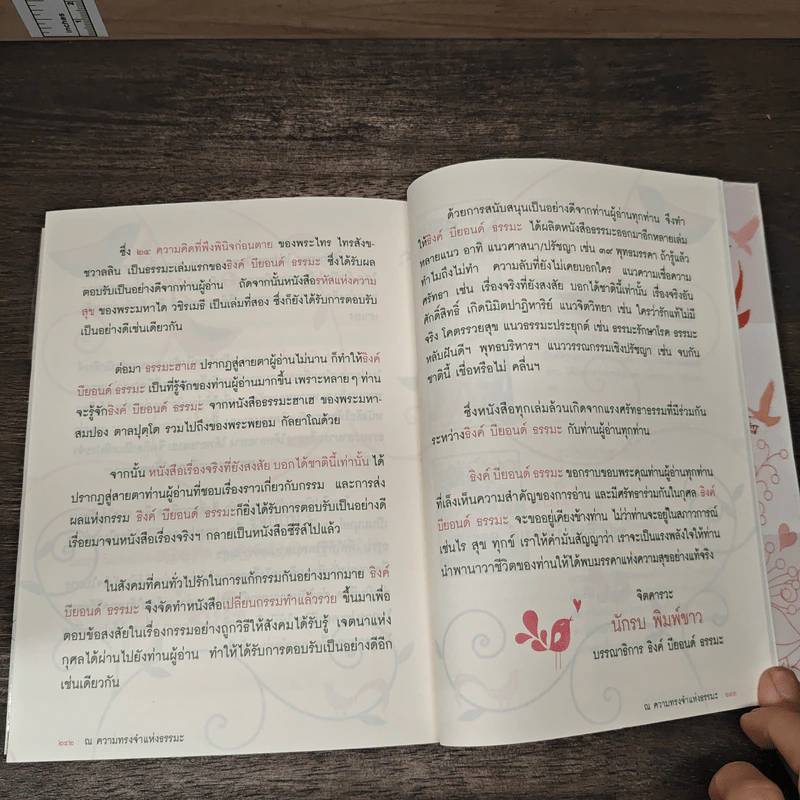 Inches
ซึ่ง ๒๔ ความคิดที่พึงพินิจก่อนตาย ของพระไทร ไทรสังข-
ชวาลลิน เป็นธรรมะเล่มแรกของธิงค์ บียอนด์ ธรรมะ ซึ่งได้รับผล
ตอบรับเป็นอย่างดีจากท่านผู้อ่าน ถัดจากนั้นหนังสือรหัสแห่งความ
สุข ของพระมหาได วชิรเมธี เป็นเล่มที่สอง ซึ่งก็ยังได้รับการตอบรับ
เป็นอย่างดีเช่นเดียวกัน
ต่อมา ธรรมะฮาเฮ ปรากฏสู่สายตาผู้อ่านไม่นาน ก็ทำให้ธิงค์
บียอนด์ ธรรมะ เป็นที่รู้จักของท่านผู้อ่านมากขึ้น เพราะหลายๆ ท่าน
จะรู้จักธิงค์ บียอนด์ ธรรมะ จากหนังสือธรรมะฮาเฮ ของพระมหา-
สมปอง ตาลปุตฺโต รวมไปถึงของพระพยอม กัลยาโณด้วย
จากนั้น หนังสือเรื่องจริงที่ยังสงสัย บอกได้ชาตินี้เท่านั้น ได้
ปรากฏสู่สายตาท่านผู้อ่านที่ชอบเรื่องราวเกี่ยวกับกรรม และการส่ง
ผลแห่งกรรม ธิงค์ บียอนด์ ธรรมะก็ยิ่งได้รับการตอบรับเป็นอย่างดี
เรื่อยมาจนหนังสือเรื่องจริงฯ กลายเป็นหนังสือซีรีส์ไปแล้ว
ในสังคมที่คนทั่วไปรักในการแก้กรรมกันอย่างมากมาย ธิงค์
บียอนด์ ธรรมะ จึงจัดทำหนังสือเปลี่ยนกรรมทำแล้วรวย ขึ้นมาเพื่อ
ตอบข้อสงสัยในเรื่องกรรมอย่างถูกวิธีให้สังคมได้รับรู้ เจตนาแห่ง
กุศลได้ผ่านไปยังท่านผู้อ่าน ทำให้ได้รับการตอบรับเป็นอย่างดีอีก
เช่นเดียวกัน
๒๔๒ ณ ความทรงจำแห่งธรรมะ
ด้วยการสนับสนุนเป็นอย่างดีจากท่านผู้อ่านทุกท่าน จึงทำ
ให้ธิงค์ บียอนด์ ธรรมะ ได้ผลิตหนังสือธรรมะออกมาอีกหลายเล่ม
หลายแนว อาทิ แนวศาสนา/ปรัชญา เช่น ๓๙ พุทธมรรคา ถ้ารู้แล้ว
ทำไมถึงไม่ทำ ความลับที่ยังไม่เคยบอกใคร แนวความเชื่อความ
ศรัทธา เช่น เรื่องจริงที่ยังสงสัย บอกได้ชาตินี้เท่านั้น เรื่องจริงอัน
ศักดิ์สิทธิ์ เกิดนิมิตปาฏิหาริย์ แนวจิตวิทยา เช่น ใครว่ารักแท้ไม่มี
จริง โคตรรวยสุข แนวธรรมะประยุกต์ เช่น ธรรมะรักษาโรค ธรรมะ
หลับฝันดีฯ พุทธบริหารฯ แนววรรณกรรมเชิงปรัชญา เช่น จบกัน
ชาตินี้ เชื่อหรือไม่ คลื่นฯ
ซึ่งหนังสือทุกเล่มล้วนเกิดจากแรงศรัทธาธรรมที่มีร่วมกัน
ระหว่างธิงค์ บียอนด์ ธรรมะ กับท่านผู้อ่านทุกท่าน
ธิงค์ บียอนด์ ธรรมะ ขอกราบขอบพระคุณท่านผู้อ่านทุกท่าน
ที่เล็งเห็นความสำคัญของการอ่าน และมีศรัทธาร่วมกันในกุศล ธิงค์
บียอนด์ ธรรมะ จะขออยู่เคียงข้างท่าน ไม่ว่าท่านจะอยู่ในสภาวการณ์
เช่นไร สุข ทุกข์ เราให้คำมั่นสัญญาว่า เราจะเป็นแรงพลังใจให้ท่าน
นำพานาวาชีวิตของท่านให้ได้พบมรรคาแห่งความสุขอย่างแท้จริง
จิตคารวะ
นักรบ พิมพ์ขาว
บรรณาธิการ ธิงค์ บียอนด์ ธรรมะ
ณ ความทรงจำแห่งธรรมะ ๒๔๓